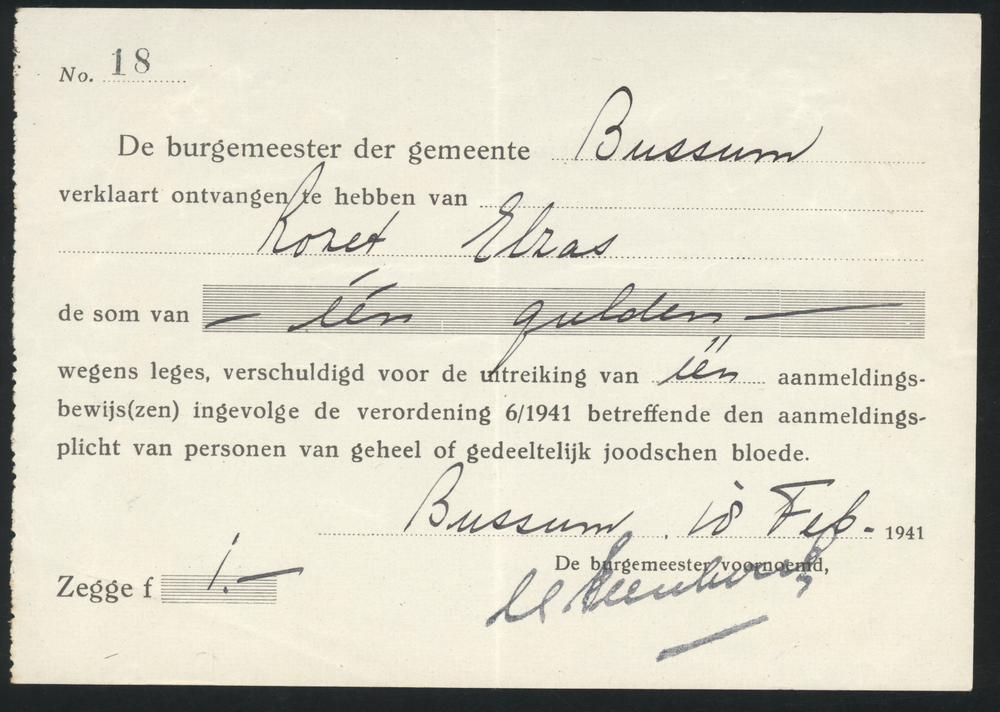 No. 18
De burgemeester der gemeente Bussum
verklaart ontvangen te hebben van
Elzas
de som van — één gulden —
wegens leges, verschuldigd voor de uitreiking van één aanmeldings-
bewijs(zen) ingevolge de verordening 6/1941 betreffende den aanmeldings-
plicht van personen van geheel of gedeeltelijk joodschen bloede.
Bussum, 18 Feb. 1941
De burgemeester voornoemd,
Zegge f 1.—